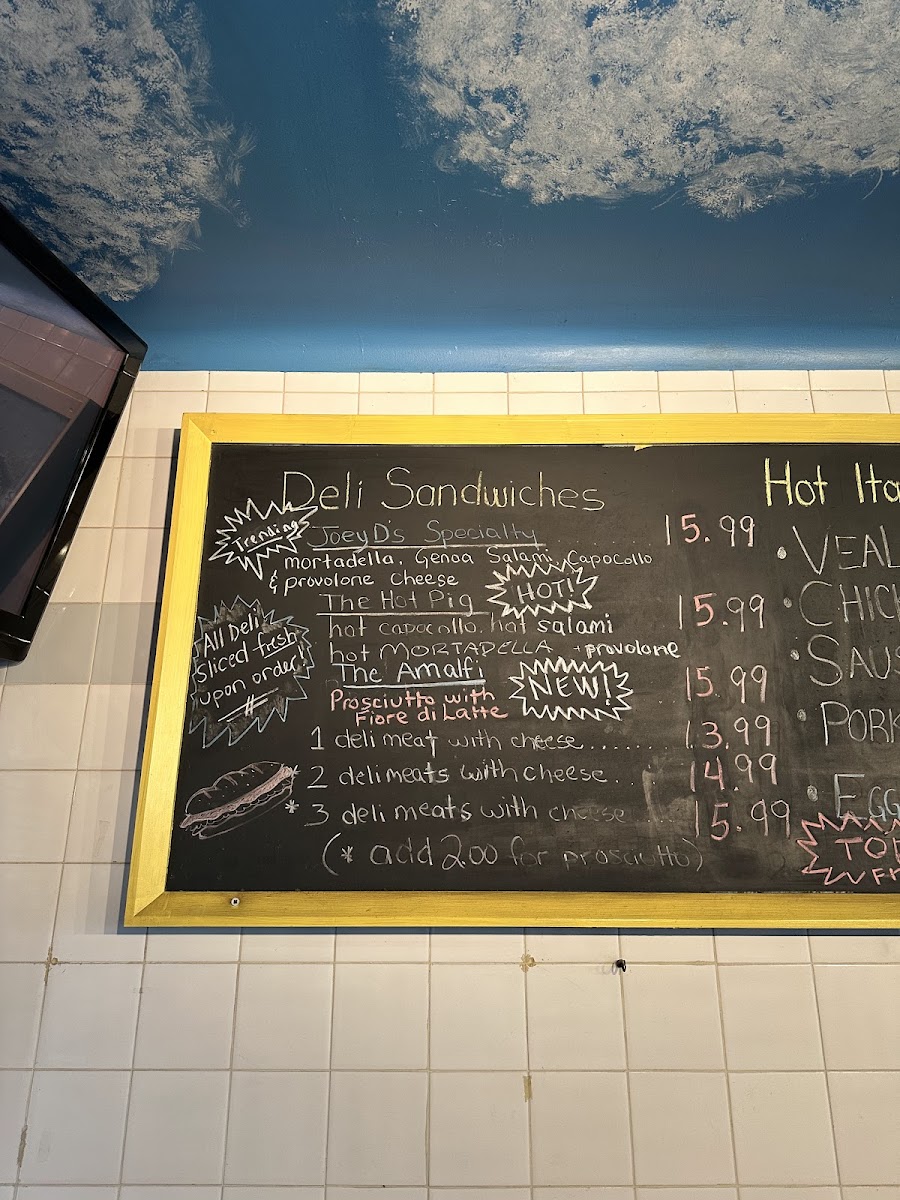 Deli Sandwiches
Trending
JoeyD's Specialty 15.99
mortadella, Genoa Salami, Capocollo
& provolone cheese
HOT!
The Hot Pig 15.99
hot capocollo, hot salami
hot MORTADELLA + provolone
All Deli
sliced fresh
upon order
The Amalfi 15.99
NEW!
Prosciutto with
Fiore di Latte
1 deli meat with cheese....... 13.99
2 deli meats with cheese.. 14.99
* 3 deli meats with cheese 15.99
(* add 2.00 for prosciutto)
Hot
• VEAL
•
•
• PORK
•